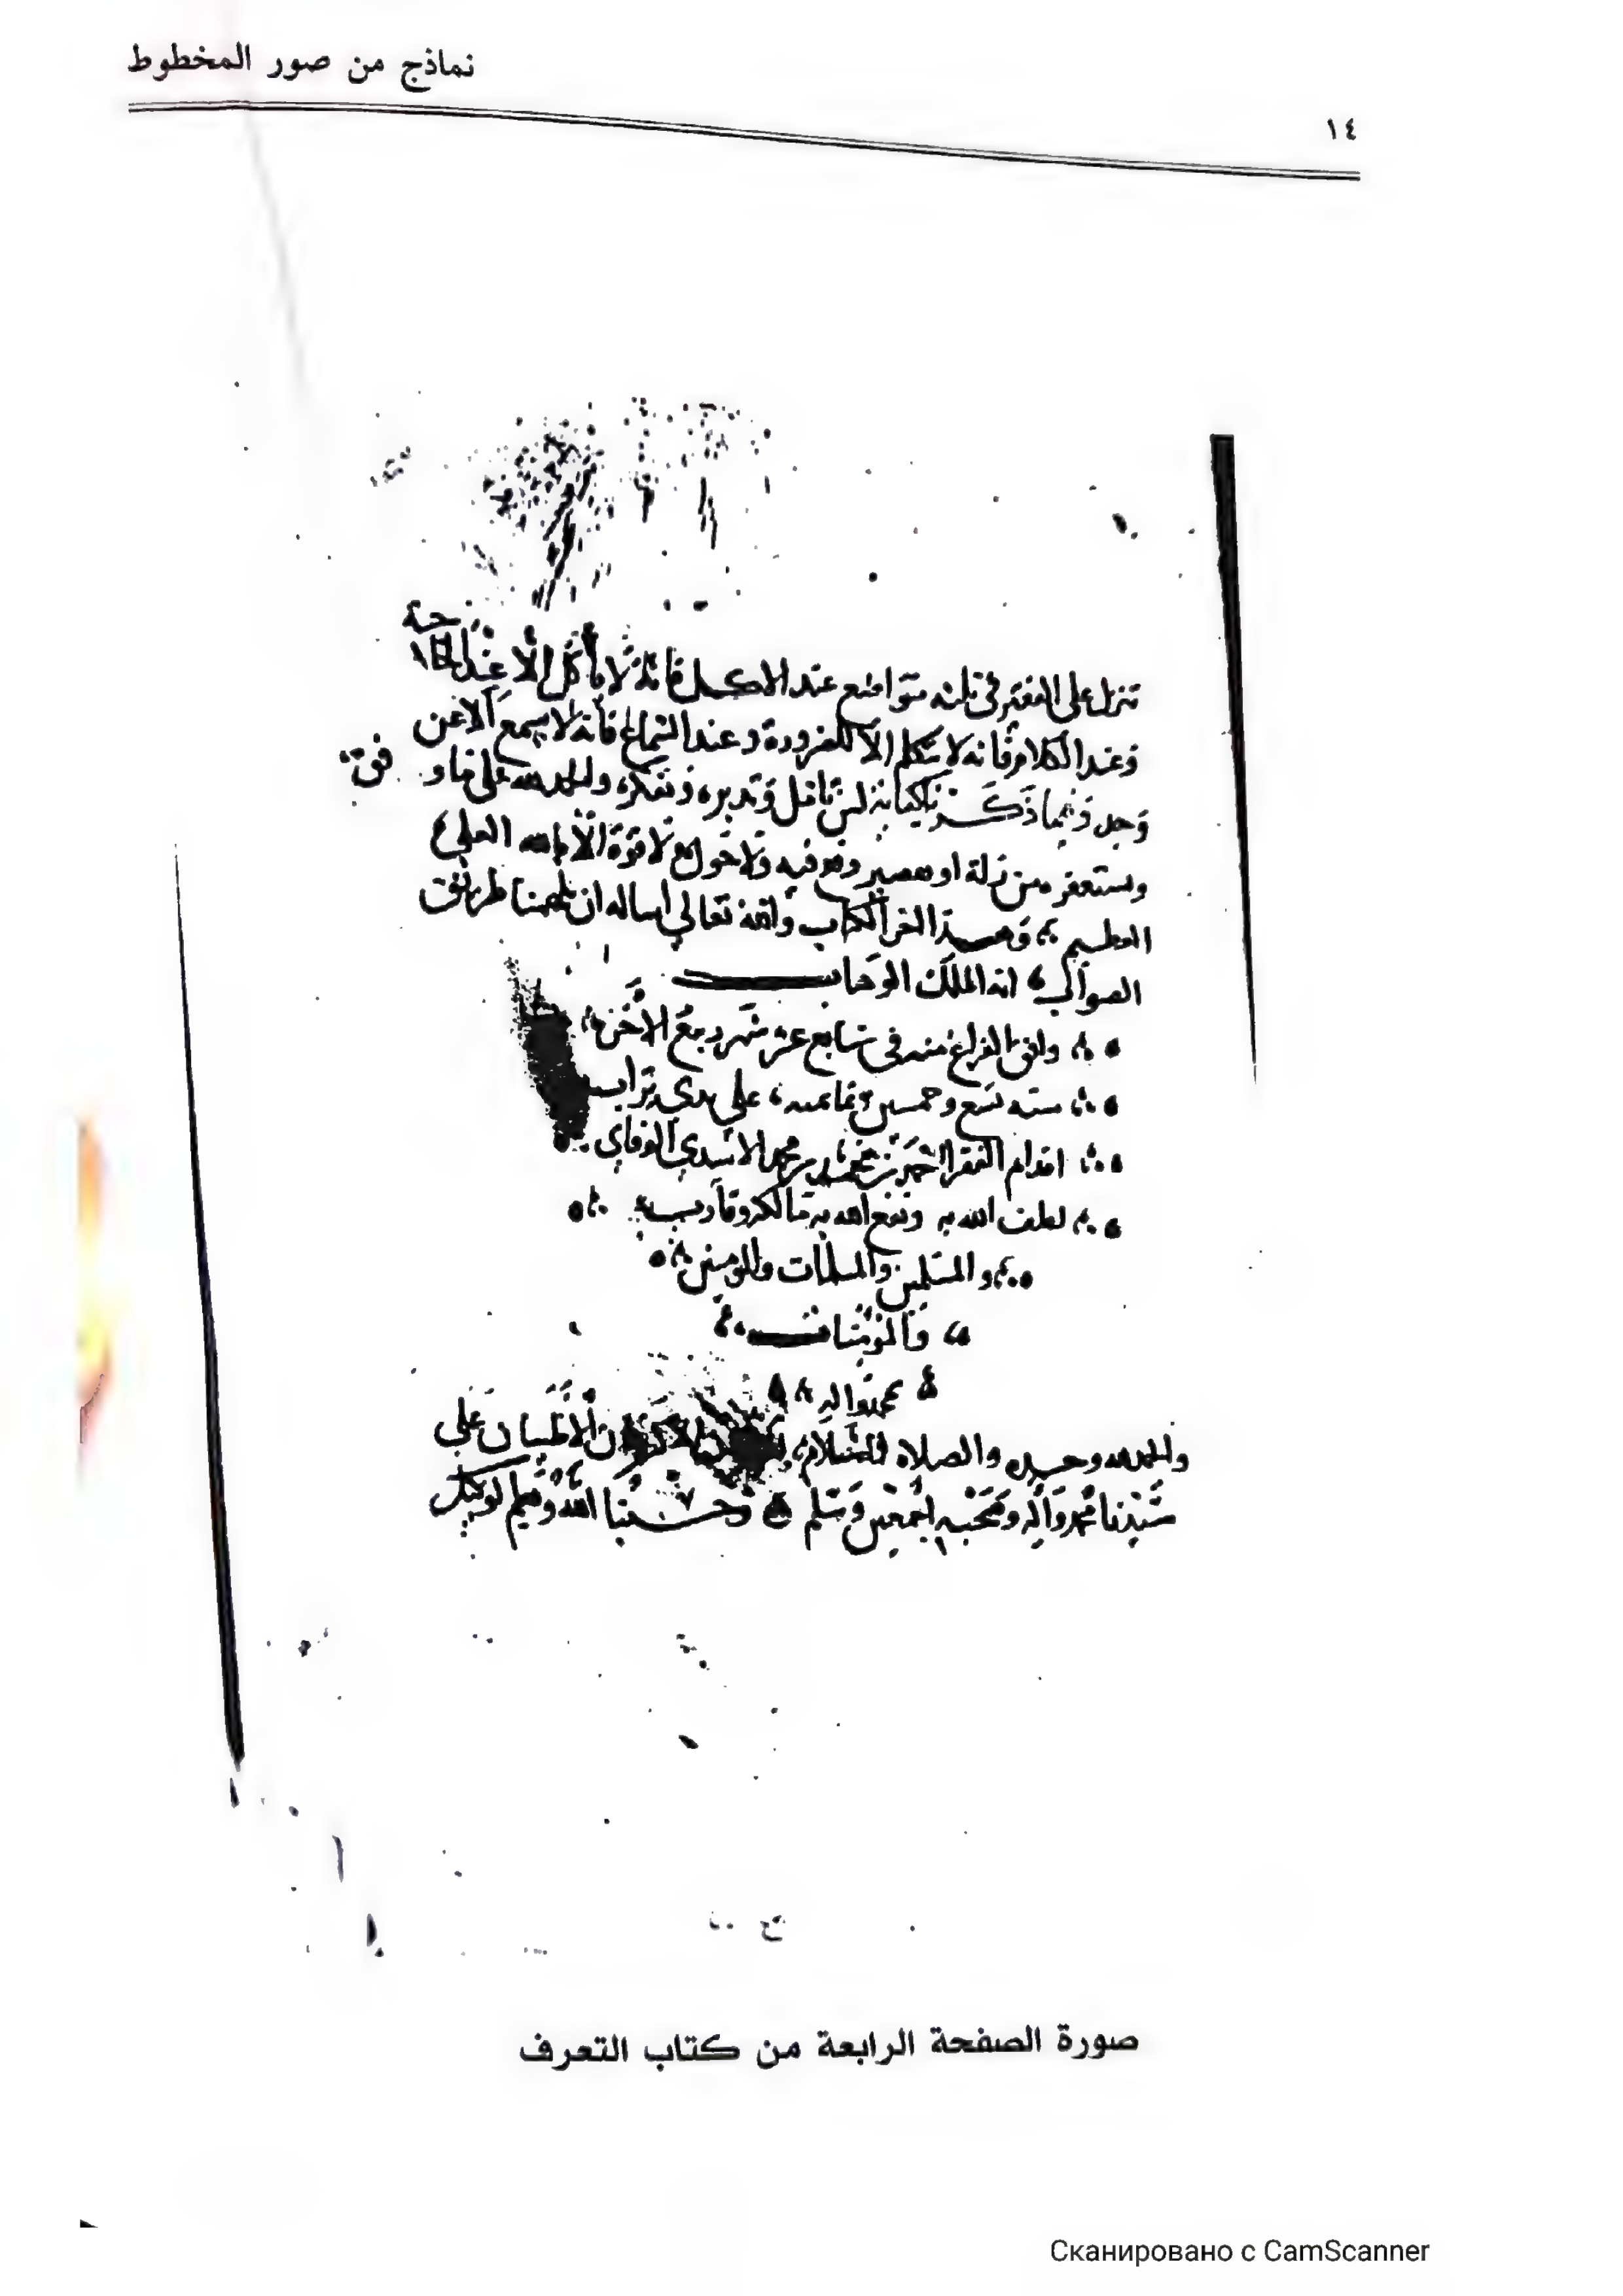 نماذج من صور المخطوط
١٤
تنزل على الفقير في ثلثه مواضع عند الاكل فانه لا يأكل إلا عند الحاجة
وعند الكلام فانه لا يتكلم الا للضرورة وعند السماع فانه لا يسمع الا عن
وجد وفيما ذكر كفاية لمن تأمل وتدبره وتفكره والحمد لله على ما وفق
ونستعفره من زلة او ولا حول ولا قوة الا بالله العلي
العظيم الكتاب والله تعالى اساله ان يلهمنا طريق
الصواب انه الملك الوهاب
وافق الفراغ منه في سابع عشر شهر ربيع الاخر
سنه تسع وخمسين وثمانمئه على يدي تراب
اقدام الفقرا بن محمد الاسدي الوفاي
لطف الله به ونفع الله به مالكه وقاريه
والمسلمين والمسلمات والمومنين
والمؤمنات
بمحمد واله
والحمد لله وحده والصلاة والسلام على
سيدنا محمد وآله وصحبه اجمعين وسلم وحسبنا الله ونعم الوكيل
صورة الصفحة الرابعة من كتاب التعرف
Сканировано с CamScanner